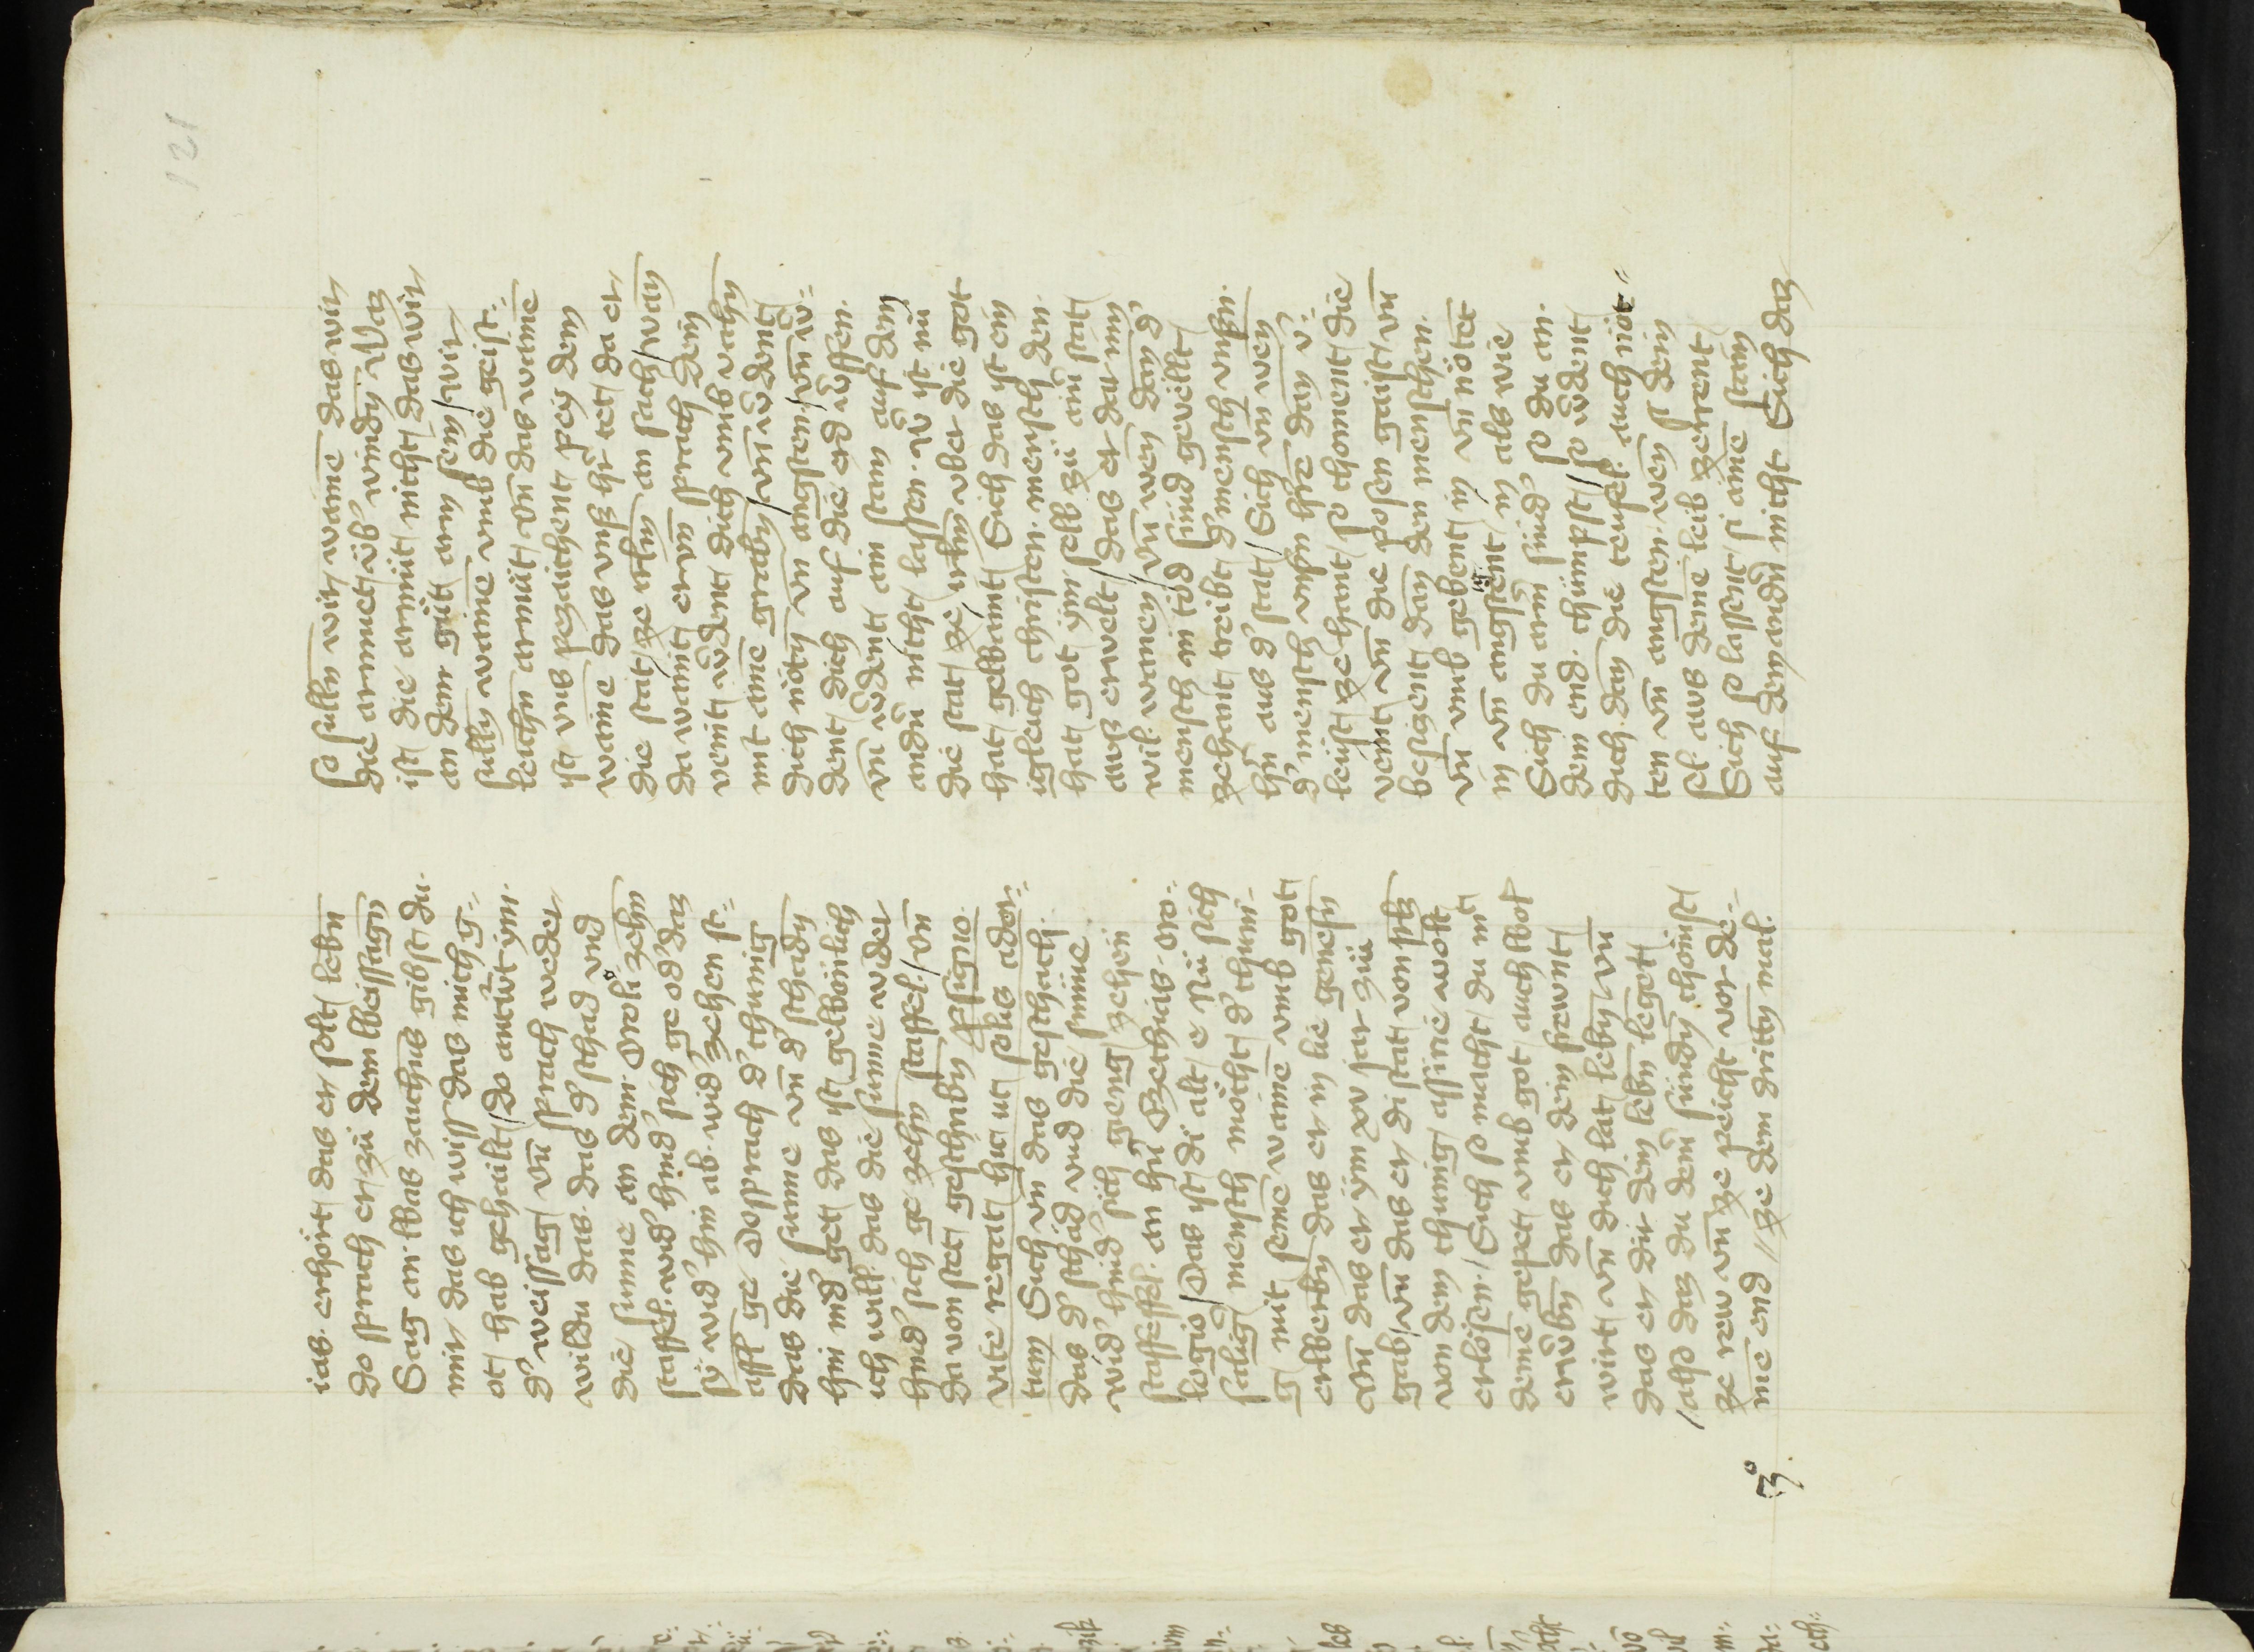 121
ias. erhört das er solt lebn̄
Do sprach er zü dem weissagn̄
Sag an was zaichns gibst du
mir das ich wiss das mich g⸗
ot hab gehailt Do antw̄t ym.
d' weissag vn̄ sprach weder
wildu das. das d' schad vnd
die sunne an dem Oroli zehn̄
staffel. wid' hind' sich ge od' daz
sÿ wid' hin ab. wid' zehen st⸗
affl ge Do sprach d' chunig
das die sunne vn̄ d' schadn̄
hin nid' get das ist gewönlich
ich will. das die sunne wider
hind' sich ge zehn̄ staffel. vn̄
da von stet geschribn̄
vite regat
tum Sich vn̄ das geschach.
das d' schad vnd die sunne
wid' hind' sich gieng zehen
staffeln. an
logio Das ist di alt e Nü sich
salig mensch möcht d' chuni⸗
g mit seine waine vmb got
erwerbn̄ das er in lie genesn̄
vn̄ das er ÿm xv iar zü
gab vn̄ das er di stat von
von dem chunig assirie wolt
erlösen. Sich so macht du mit
deine gepet vmb got auch wol
erw̄bn̄ das er dein frewnt
wirt vn̄ dich lat lebn̄ vn̄
das er dir dein lebn̄ leget.
also daz du dein̄ sündn̄ chömst
ze rew vn̄ ze peicht vor de⸗
me end ze dem dritty mal.
so sulln̄ wir waine das wir
die armuet üb' windn̄ Waz
ist die armüt nicht das wir
an dem güt arm sein wir
sulln̄ waine vmb die geist⸗
leichn̄ armüt vn̄ das waine
ist vns pezaichent pey dem
waine das vnß h̄r tet da er
die stat ze irlm̄ an sach wan̄
da waint er vn̄ sprach dein
veint w̄dent dich vmb vahn̄
mit aime grabn̄ vn̄ w̄dent
dich nötn̄ vn̄ angsten. vn̄ w̄⸗
dent dich auf die erd w̄ffen.
vn̄ w̄dent ain stain auf dem
andn̄ nicht lassen. Nv̄ ist nü
die stat ze irlm̄ vber die got
hat gewaint Sich das ist ein
igleich christen. mensch den.
hat got ÿm selb zü ain̄ stat
auß erwelt das er dar inn
wil. wanen vn̄ wen̄ dan̄ d'
mensch in töd sünd gevellt
zehant treibt d' mensch vnßn.
h̄n aus d' stat Sich vn̄ wen̄
d' mensch vnßn h̄re dan̄ v̄⸗
leust ze hant so choment die
veint vn̄ die posen gaist vn̄
besizent dan̄ den menschen.
vn̄ vmb gebent in vn̄ nötet
in vn̄ angstent in als wie
Sich du arm̄ sünd' so du an.
dem end. chümpst so w̄dent
dich. dan̄ die teufel. auch nöt⸗
ten vn̄ angsten. wen̄ si dein
sel aws deine leib zerrent
Sich so lassnt si aine stain
auf dem andn̄ nicht Sich daz